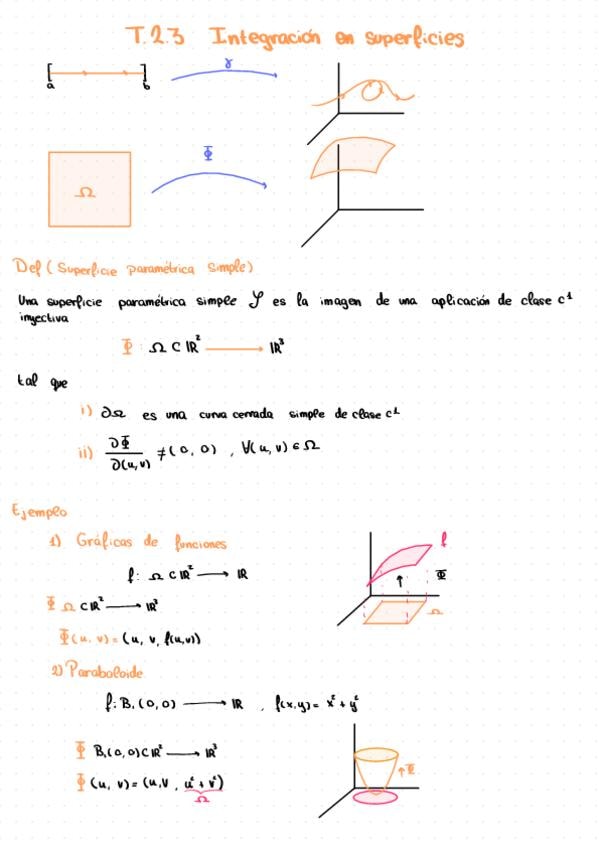 T.2.3 Integración en superficies
a b γ
Ω Φ
Def (Superficie paramétrica simple)
Una superficie paramétrica simple 𝒮 es la imagen de una aplicación de clase C¹
inyectiva
Φ : Ω ⊂ ℝ² → ℝ³
tal que
i) ∂Ω es una curva cerrada simple de clase C¹
ii) ∂Φ/∂(u,v) ≠ (0, 0) , ∀(u, v) ∈ Ω
Ejemplo
1) Gráficas de funciones
f
f: Ω ⊂ ℝ² → ℝ
Φ
Φ Ω ⊂ ℝ² → ℝ³
Ω
Φ(u, v) = (u, v, f(u,v))
2) Paraboloide
f: B₁(0,0) → ℝ , f(x,y) = x² + y²
Φ B₁(0,0) ⊂ ℝ² → ℝ³
Φ
Φ(u, v) = (u, v, u² + v²)
Ω